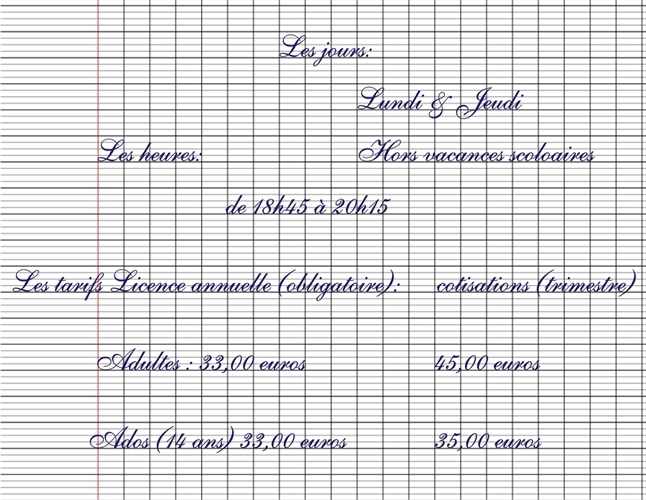 Les jours:
Lundi & Jeudi
Les heures: Hors vacances scoloaires
de 18h45 à 20h15
Les tarifs Licence annuelle (obligatoire): cotisations (trimestre)
Adultes : 33,00 euros 45,00 euros
Ados (14 ans) 33,00 euros 35,00 euros